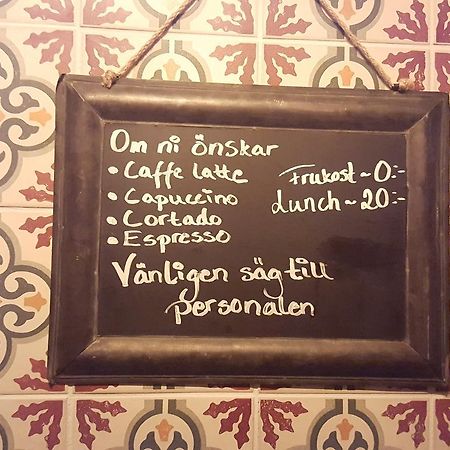 Om ni önskar
• Caffe latte
• Capuccino
• Cortado
• Espresso
Frukost ~ 0:-
Lunch ~ 20:-
Vänligen säg till
personalen